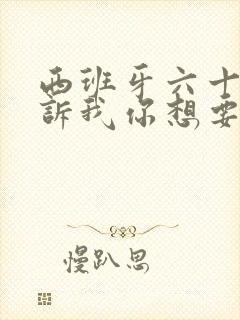 西班牙六十
訴我你想要
慢趴思